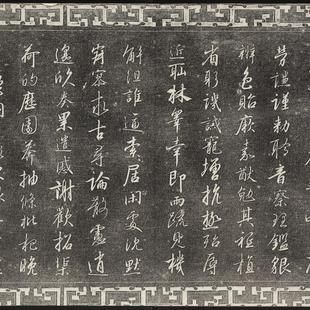 勞謙謹勅聆音察理鑑貌
辨色貽厥嘉猷勉其祗植
省躬譏誡寵增抗極殆辱
近恥林皋幸即兩疏見機
解組誰逼索居閑處沈默
寂寥求古尋論散慮逍
遙欣奏累遣慼謝歡招渠
荷的歷園莽抽條枇杷晚